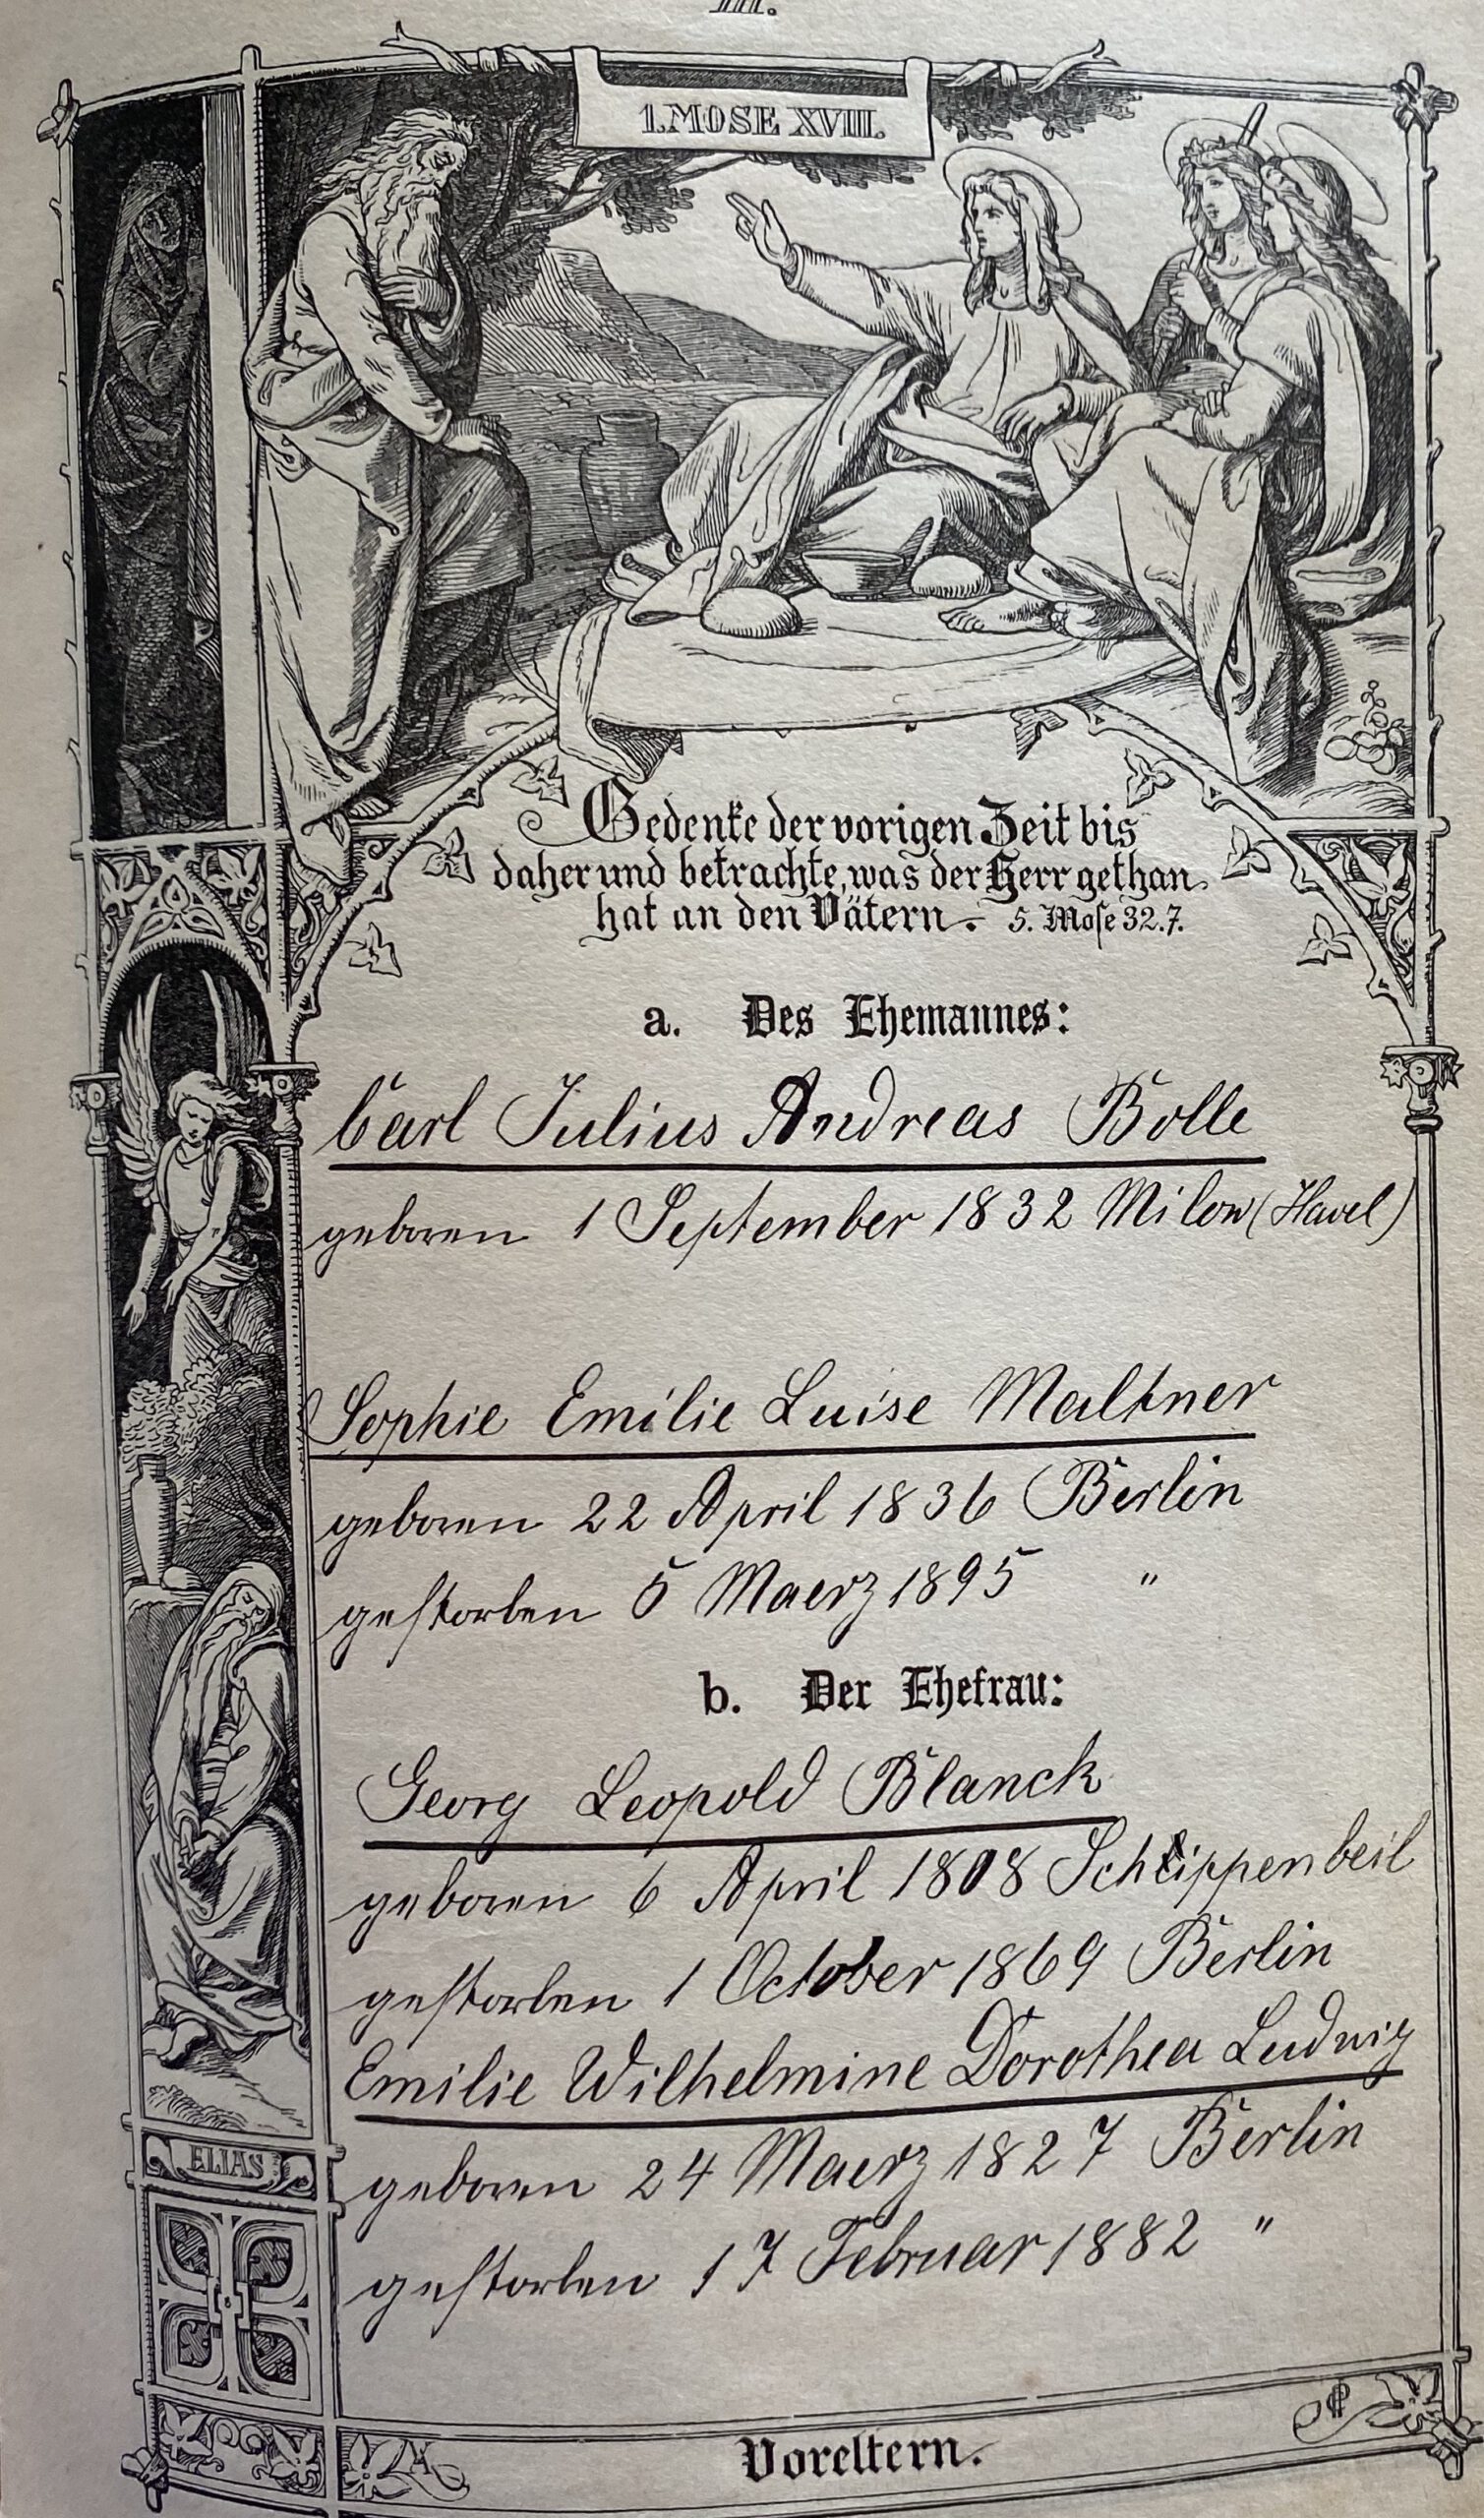 III.
1. MOSE XVIII.
Gedenke der vorigen Zeit bis
daher und betrachte, was der Herr gethan
hat an den Vätern. 5. Mose 32.7.
a. Des Ehemannes:
Carl Julius Andreas Bolle
geboren 1 September 1832 Milow (Havel)
Sophie Emilie Luise Maltner
geboren 22 April 1836 Berlin
gestorben 5 Maerz 1895 "
b. Der Ehefrau:
Georg Leopold Blanck
geboren 6 April 1808 Schippenbeil
gestorben 1 October 1869 Berlin
Emilie Wilhelmine Dorothea Ludwig
geboren 24 Maerz 1827 Berlin
gestorben 17 Februar 1882 "
ELIAS
Voreltern.